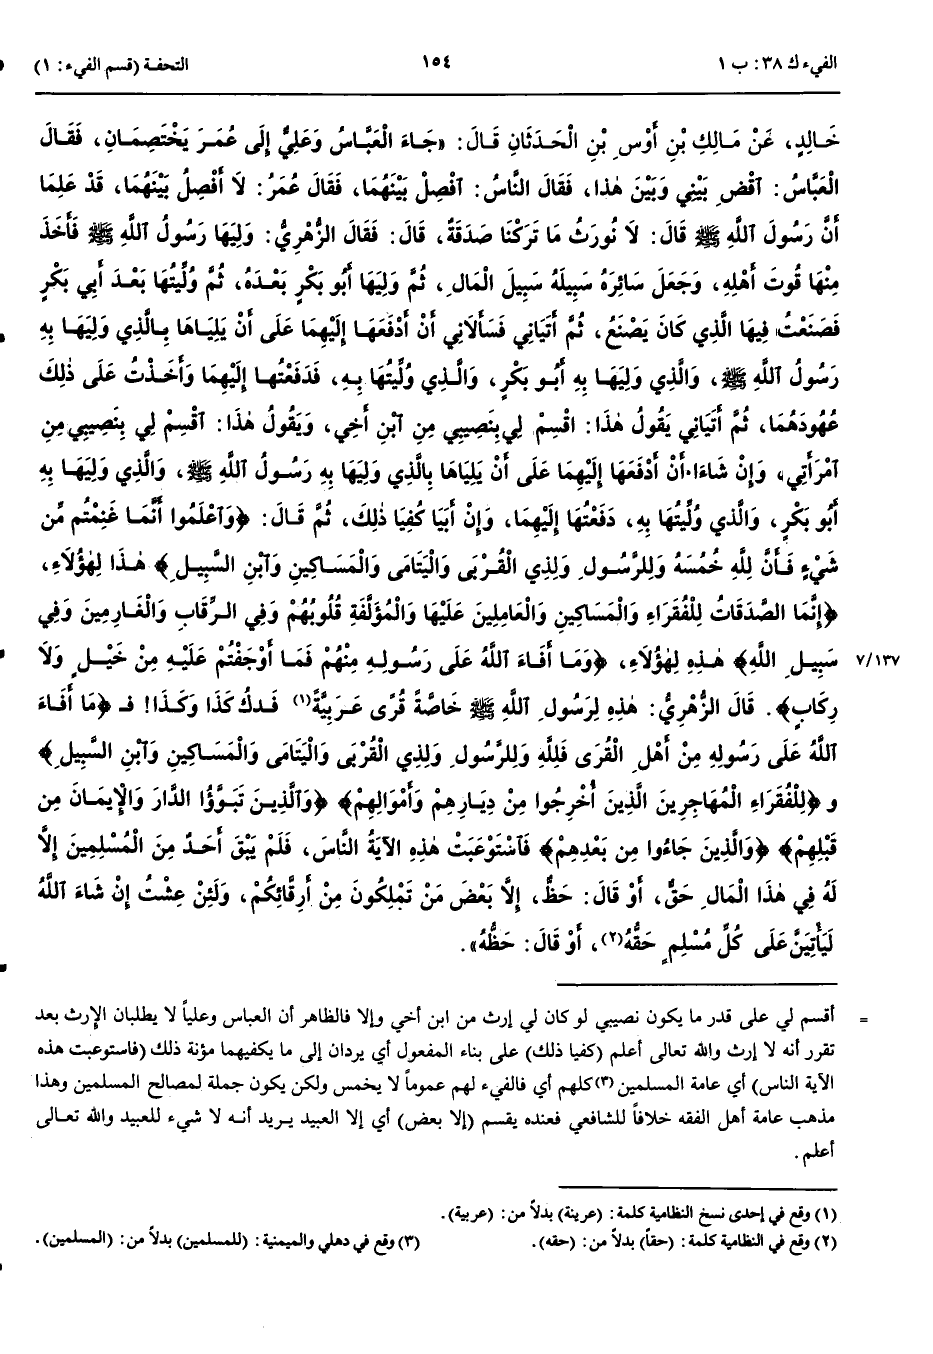 الفيء ك ٣٨: ب ١
١٥٤
التحفة (قسم الفيء: ١)
خَالِدٍ، عَنْ مَالِكِ بْنِ أَوْسِ بْنِ الْحَدَثَانِ قَالَ: «جَاءَ الْعَبَّاسُ وَعَلِيٌّ إِلَى عُمَرَ يَخْتَصِمَانِ، فَقَالَ
الْعَبَّاسُ: اَقْضِ بَيْنِي وَبَيْنَ هٰذَا، فَقَالَ النَّاسُ: اَفْصِلْ بَيْنَهُمَا، فَقَالَ عُمَرُ: لَا أَفْصِلُ بَيْنَهُمَا، قَدْ عَلِمَا
أَنَّ رَسُولَ اللَّهِ ﷺ قَالَ: لَا نُورَثُ مَا تَرَكْنَا صَدَقَةٌ، قَالَ: فَقَالَ الزُّهْرِيُّ: وَلِيَهَا رَسُولُ اللَّهِ ﷺ فَأَخَذَ
مِنْهَا قُوتَ أَهْلِهِ، وَجَعَلَ سَائِرَهُ سَبِيلَهُ سَبِيلَ الْمَالِ، ثُمَّ وَلِيَهَا أَبُو بَكْرٍ بَعْدَهُ، ثُمَّ وُلِّيتُهَا بَعْدَ أَبِي بَكْرٍ
فَصَنَعْتُ فِيهَا الَّذِي كَانَ يَصْنَعُ، ثُمَّ أَتَيَانِي فَسَأَلَانِي أَنْ أَدْفَعَهَا إِلَيْهِمَا عَلَى أَنْ يَلِيَاهَا بِالَّذِي وَلِيَهَا بِهِ
رَسُولُ اللَّهِ ﷺ، وَالَّذِي وَلِيَهَا بِهِ أَبُو بَكْرٍ، وَالَّذِي وُلِّيتُهَا بِهِ، فَدَفَعْتُهَا إِلَيْهِمَا وَأَخَذْتُ عَلَى ذٰلِكَ
عُهُودَهُمَا، ثُمَّ أَتَيَانِي يَقُولُ هٰذَا: اقْسِمْ لِي بِنَصِيبِي مِنِ ابْنِ أَخِي، وَيَقُولُ هٰذَا: اَقْسِمْ لِي بِنَصِيبِي مِنِ
امْرَأَتِي، وَإِنْ شَاءَا أَنْ أَدْفَعَهَا إِلَيْهِمَا عَلَى أَنْ يَلِيَاهَا بِالَّذِي وَلِيَهَا بِهِ رَسُولُ اللَّهِ ﷺ، وَالَّذِي وَلِيَهَا بِهِ
أَبُو بَكْرٍ، وَالَّذِي وُلِّيتُهَا بِهِ، دَفَعْتُهَا إِلَيْهِمَا، وَإِنْ أَبَيَا كُفِيَا ذٰلِكَ، ثُمَّ قَالَ: ﴿وَاعْلَمُوا أَنَّمَا غَنِمْتُم مِّن
شَيْءٍ فَأَنَّ لِلَّهِ خُمُسَهُ وَلِلرَّسُولِ وَلِذِي الْقُرْبَى وَالْيَتَامَى وَالْمَسَاكِينِ وَابْنِ السَّبِيلِ﴾ هٰذَا لِهٰؤُلَاءِ،
﴿إِنَّمَا الصَّدَقَاتُ لِلْفُقَرَاءِ وَالْمَسَاكِينِ وَالْعَامِلِينَ عَلَيْهَا وَالْمُؤَلَّفَةِ قُلُوبُهُمْ وَفِي الرِّقَابِ وَالْغَارِمِينَ وَفِي
سَبِيلِ اللَّهِ﴾ هٰذِهِ لِهٰؤُلَاءِ، ﴿وَمَا أَفَاءَ اللَّهُ عَلَى رَسُولِهِ مِنْهُمْ فَمَا أَوْجَفْتُمْ عَلَيْهِ مِنْ خَيْلٍ وَلَا ٧/١٣٧
رِكَابٍ﴾. قَالَ الزُّهْرِيُّ: هٰذِهِ لِرَسُولِ اللَّهِ ﷺ خَاصَّةً قُرًى عَرَبِيَّةً(١) فَدَكُ كَذَا وَكَذَا! فَـ ﴿مَا أَفَاءَ
اللَّهُ عَلَى رَسُولِهِ مِنْ أَهْلِ الْقُرَى فَلِلَّهِ وَلِلرَّسُولِ وَلِذِي الْقُرْبَى وَالْيَتَامَى وَالْمَسَاكِينِ وَابْنِ السَّبِيلِ﴾
و ﴿لِلْفُقَرَاءِ الْمُهَاجِرِينَ الَّذِينَ أُخْرِجُوا مِنْ دِيَارِهِمْ وَأَمْوَالِهِمْ﴾ ﴿وَالَّذِينَ تَبَوَّؤُا الدَّارَ وَالْإِيمَانَ مِن
قَبْلِهِمْ﴾ ﴿وَالَّذِينَ جَاءُوا مِن بَعْدِهِمْ﴾ فَاسْتَوْعَبَتْ هٰذِهِ الْآيَةُ النَّاسَ، فَلَمْ يَبْقَ أَحَدٌ مِنَ الْمُسْلِمِينَ إِلَّا
لَهُ فِي هٰذَا الْمَالِ حَقٌّ، أَوْ قَالَ: حَظٌّ، إِلَّا بَعْضَ مَنْ تَمْلِكُونَ مِنْ أَرِقَّائِكُمْ، وَلَئِنْ عِشْتُ إِنْ شَاءَ اللَّهُ
لَيَأْتِيَنَّ عَلَى كُلِّ مُسْلِمٍ حَقُّهُ(٢)، أَوْ قَالَ: حَظُّهُ».
= أقسم لي على قدر ما يكون نصيبي لو كان لي إرث من ابن أخي وإلا فالظاهر أن العباس وعلياً لا يطلبان الإرث بعد
تقرر أنه لا إرث والله تعالى أعلم (كفيا ذلك) على بناء المفعول أي يردان إلى ما يكفيهما مؤنة ذلك (فاستوعبت هذه
الآية الناس) أي عامة المسلمين(٣) كلهم أي فالفيء لهم عموماً لا يخمس ولكن يكون جملة لمصالح المسلمين وهذا
مذهب عامة أهل الفقه خلافاً للشافعي فعنده يقسم (إلا بعض) أي إلا العبيد يريد أنه لا شيء للعبيد والله تعالى
أعلم.
(١) وقع في إحدى نسخ النظامية كلمة: (عرينة) بدلاً من: (عربية).
(٢) وقع في النظامية كلمة: (حقاً) بدلاً من: (حقه). (٣) وقع في دهلي والميمنية: (للمسلمين) بدلاً من: (المسلمين).